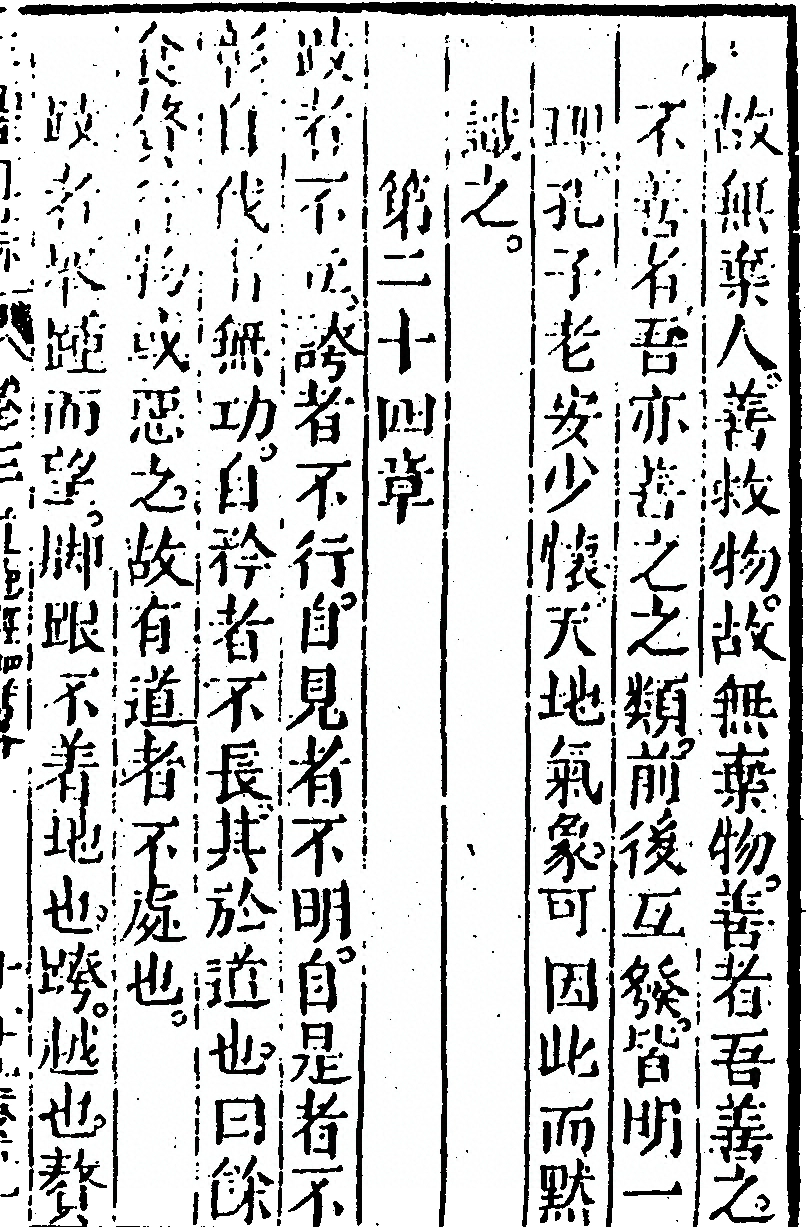 故無棄人。善救物。故無棄物。善者吾善之。
不善者吾亦善之之類。前後互發。皆明一
理。孔子老安少懷。天地氣象。可因此而默
識之。
第二十四章
跂者不立。誇者不行。自見者不明。自是者不
彰。自伐者無功。自矜者不長。其於道也。曰餘
食贅行。物或惡之。故有道者不處也。
跂者举踵而望。脚跟不着地也。跨。越也。贅